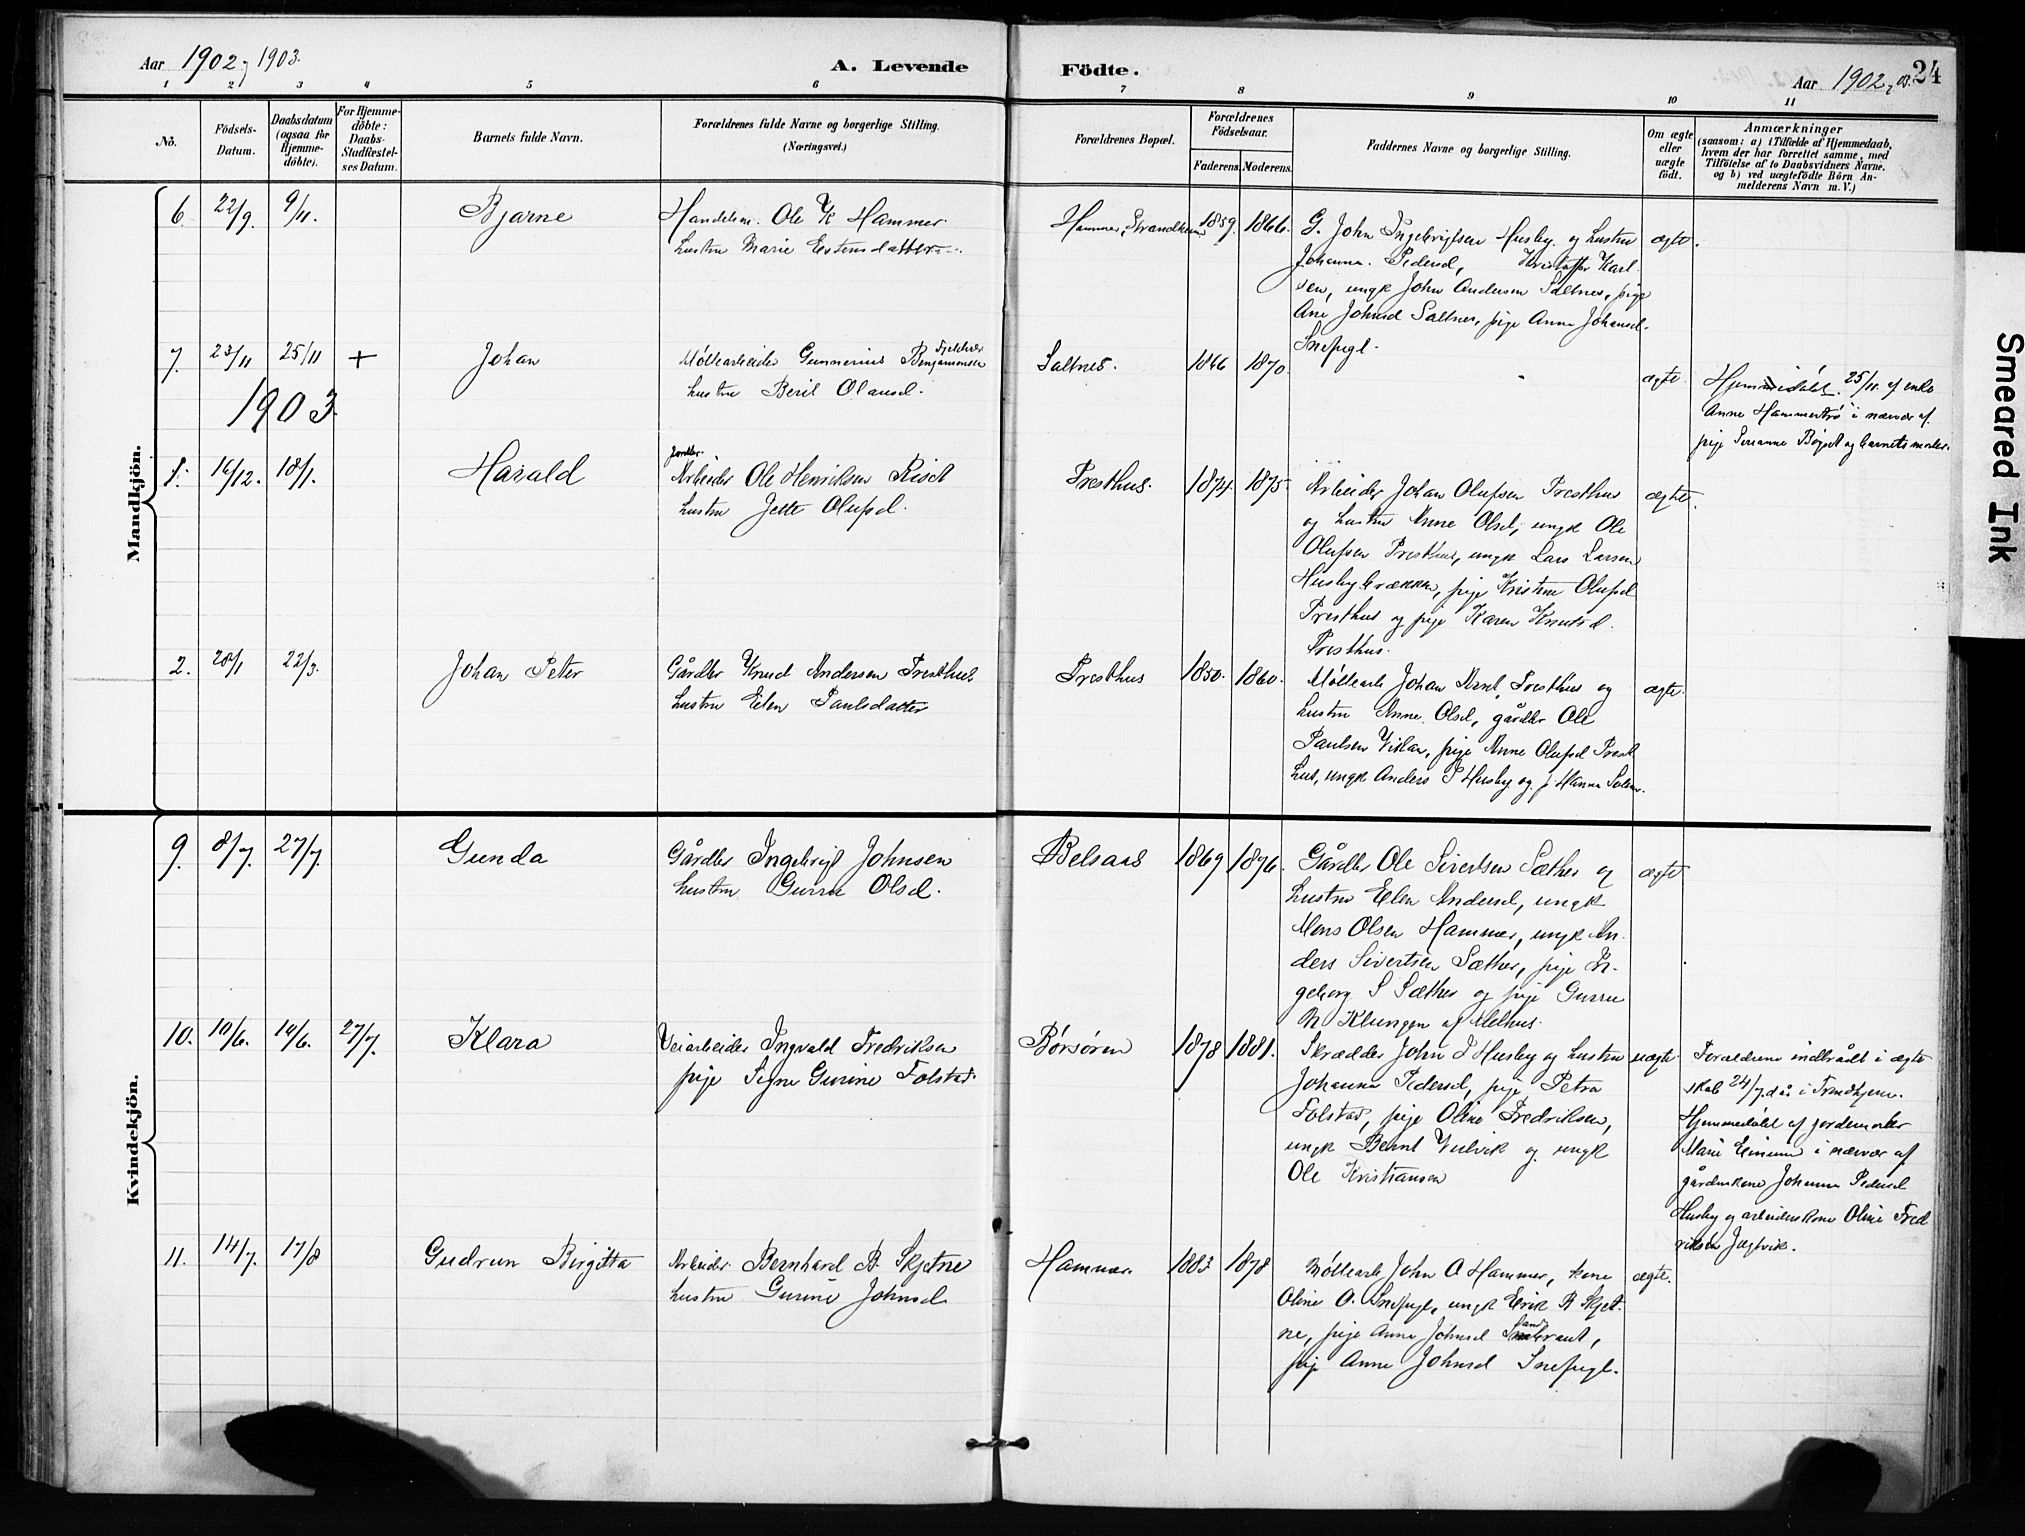 Aar 1902, 1903.
A. Levende Födte.
Aar 1902, 03.
24
1 2 3 4 5 6 7 8 9 10 11
No.
Födsels-
Datum.
Daabsdatum
(ogsaa for
Hjemme-
döbte).
For Hjemme-
döbte:
Daabs-
Stadfæstel-
ses Datum.
Barnets fulde Navn.
Forældrenes fulde Navne og borgerlige Stilling.
(Næringsvei.)
Forældrenes Bopæl.
Forældrenes
Födselsaar.
Faderens. Moderens.
Faddernes Navne og borgerlige Stilling.
Om ægte
eller
uægte
födt.
Anmærkninger
(saasom: a) i Tilfælde af Hjemmedaab,
hvem der har forrettet samme, med
Tilföielse af to Daabsvidners Navne,
og b) ved uægtefödte Börn An-
melderens Navn m. V.)
Mandkjön.
6. 22/9. 9/11. Bjarne
Handelsm. Ole K Hammer
hustru Marie Estensdatter
Hammer, Strandheim 1859. 1866.
G. John Ingebrigtsen Husby og hustru
Johanna Pedersd, Kristoffer Karl
sen, ungk John Andersen Saltnes, pige
Ane Johnsd Saltnes, pige Anne Johansd
Snefugl.
ægte.
7. 23/11 25/11 + Johan
Møllearbeider Gunnerius Benjaminsen
hustru Beril Olausd.
Saltnes. 1866 1870.
ægte.
Hjemmedøbt 25/11 af enke
Anne Hammertrø i nærvær af
pige Serianne Bøgset og barnets moder.
1903.
1. 16/12. 18/1. Harald
Arbeider Ole Henriksen Riset
hustru Jette Olufsd.
Presthus. 1874. 1875
Arbeider Johan Olufsen Presthus
og hustru Anne Olsd, ungk Ole
Olufsen Presthus, ungk Lars Larsen
Husbybrækken, pige Kristine Olufsd
Presthus og pige Karen Knutsd.
Presthus.
ægte.
2. 28/1 22/3. Johan Peter
Gårdbr Knud Andersen Presthus
hustru Elen Paulsdatter
Presthus 1850. 1860.
Møllearb Johan Arnt. Presthus og
hustru Anne Olsd, gårdbr Ole
Paulsen Vislan, pige Anne Olufsd Prest
hus, ungk Anders P Husby og p Hanna
ægte.
Kvindekjön.
9. 8/7. 27/7. Gunda
Gårdbr Ingebrigt Johnsen
hustru Gurru Olsd.
Belsaas 1869 1876.
Gårdbr Ole Sivertsen Sæther og
hustru Elen Andersd, ungk
Mons Olsen Hammer, ungk An-
ders Sivertsen Sæther, pige In-
geborg S Sæther og pige Gurru
N Klungen af Melhus.
ægte
10. 10/6. 14/6. 27/7. Klara
Veiarbeider Ingvald Fredriksen
pige Signe Gurine Folstad.
Børsøren 1878 1881.
Skrædder John I Husby og hustru
Johanna Pedersd, pige Petra
Folstad, pige Oline Fredriksen,
ungk Bernt Viilvik og ungk
Ole Kristiansen
uægte
Foreldrene indtrådt i ægte
skab 24/7 d å i Trondhjem.
Hjemmedøbt af jordemoder
Marie Einum i nærvær af
gårdmkone Johanna Pedersd
Husby og arbeiderskone Oline Fred
riksen Jagtvik.
11. 14/7. 17/8 Gudrun Birgitta
Arbeider Bernhard B. Skjetne
hustru Gurine Johnsd
Hammer. 1883 1878
Møllearb John A Hammer, kone
Oline O. Snefugl, ungk Erik B Skjet-
ne, pige Anna Johnsd
pige Anne Johnsd Snefugl.
ægte.
Smeared Ink